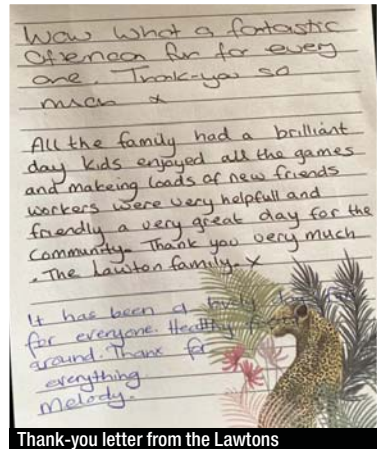 Wow what a fantastic
afternoon fun for every
one. Thank-you so
much x
All the family had a brilliant
day kids enjoyed all the games
and makeing loads of new friends
workers were very helpfull and
friendly a very great day for the
Community. Thank you very much
. The Lawton family. x
It has been a lovely day
for everyone. Healthy
around. Thanx for
everything
Melody.
Thank-you letter from the Lawtons